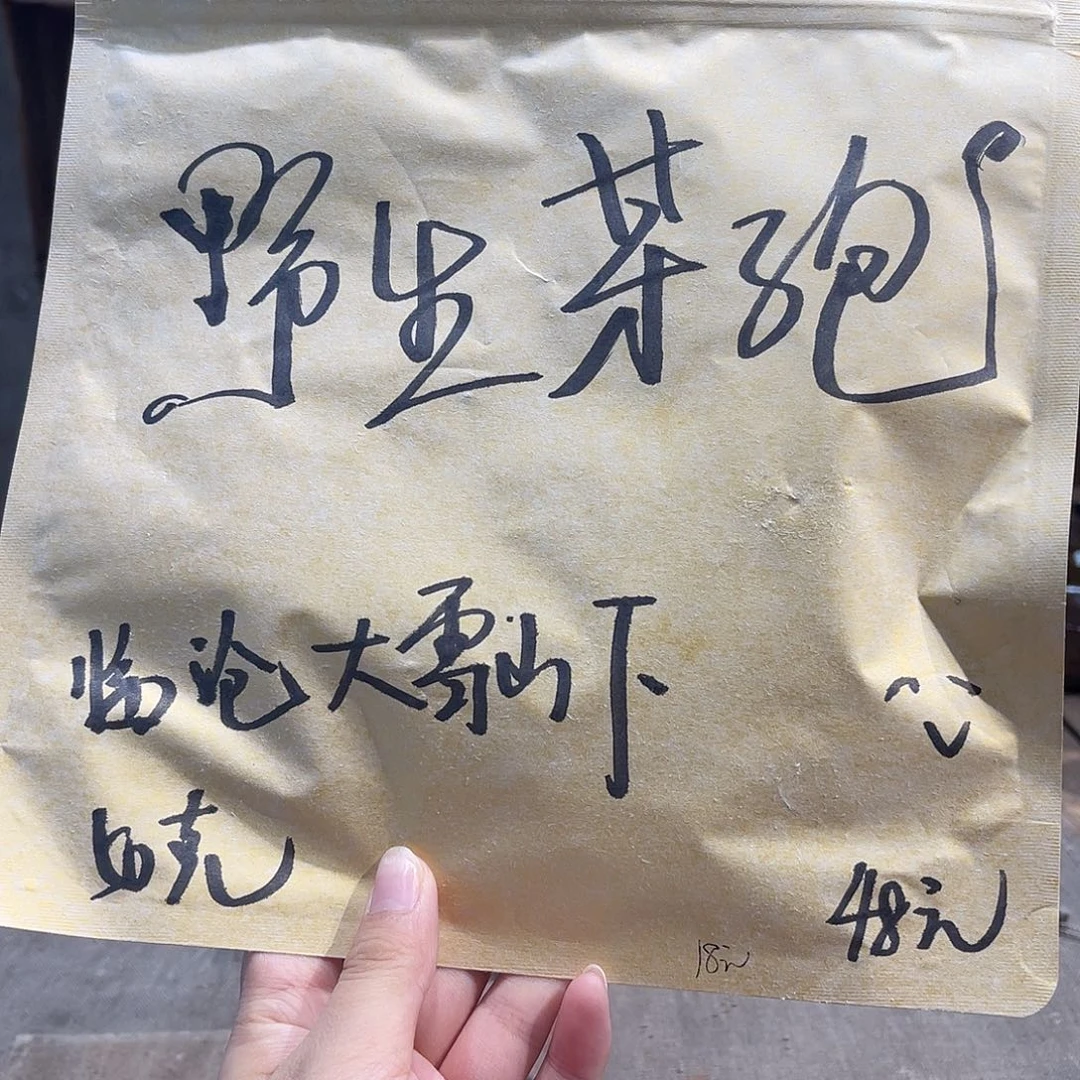 野生芽孢
临沧大雪山下
50克
48元
18元